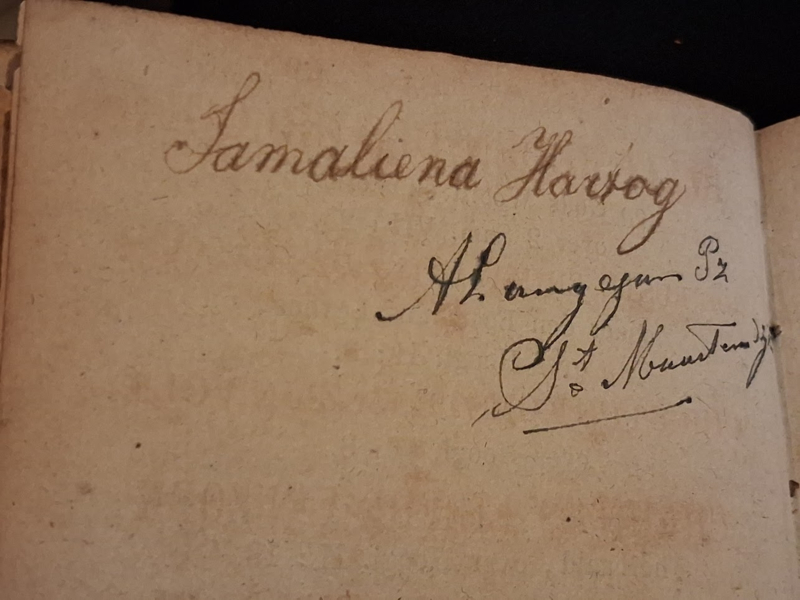 Samaliena Hartog
A Langejan Pz
St Maartensdijk